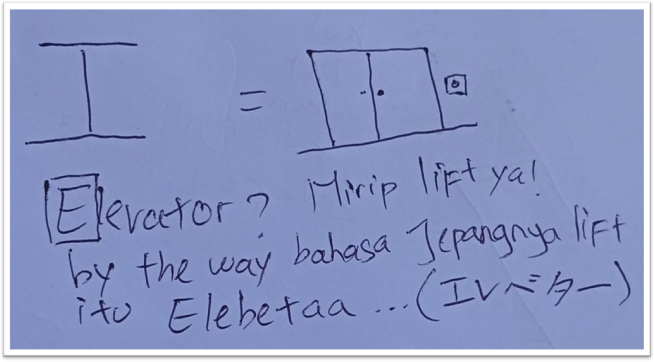 エ =
Elevator? Mirip lift ya!
by the way bahasa Jepangnya lift
itu Elebetaa ... (エレベター)